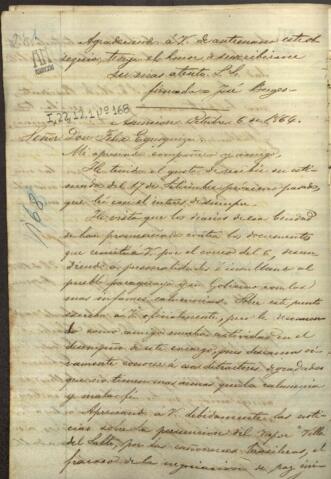 Agradeciendo á V. de antemano este ob
sequio, tengo el honor de suscribirme
su mas atento S. S.
firmado = José Berges
I,22,11,1 Nº 168
Asuncion Octubre 6 de 1864.
Señor Don Felix Egusquiza.
Mi apreciado compatriota y amigo.
He tenido el gusto de recibir su esti-
mado del 17 de Setiembre proximo pasado,
que leí con el interes de siempre.
He visto que los diarios de esa Ciudad
se han pronunciado contra los documentos
que remitia V. por el correo del 6,
diendo a personalidades é insultando al
pueblo paraguayo y su Gobierno con las
mas infames calumnias. Sobre este punto
escribo a V. oficialmente, pero le recomien-
do como amigo mucha actividad en el
desempeño de este encargo, pues deseamos vi-
vamente conocer á esos detractores degradados
que no tienen mas armas que la calumnia
y mala fé.
Apreciando a V. debidamente las noti-
cias sobre la persecucion del Vapor "Villa
del Salto", por las cañoneras brasileras, el
fracaso de la negociacion de paz
168